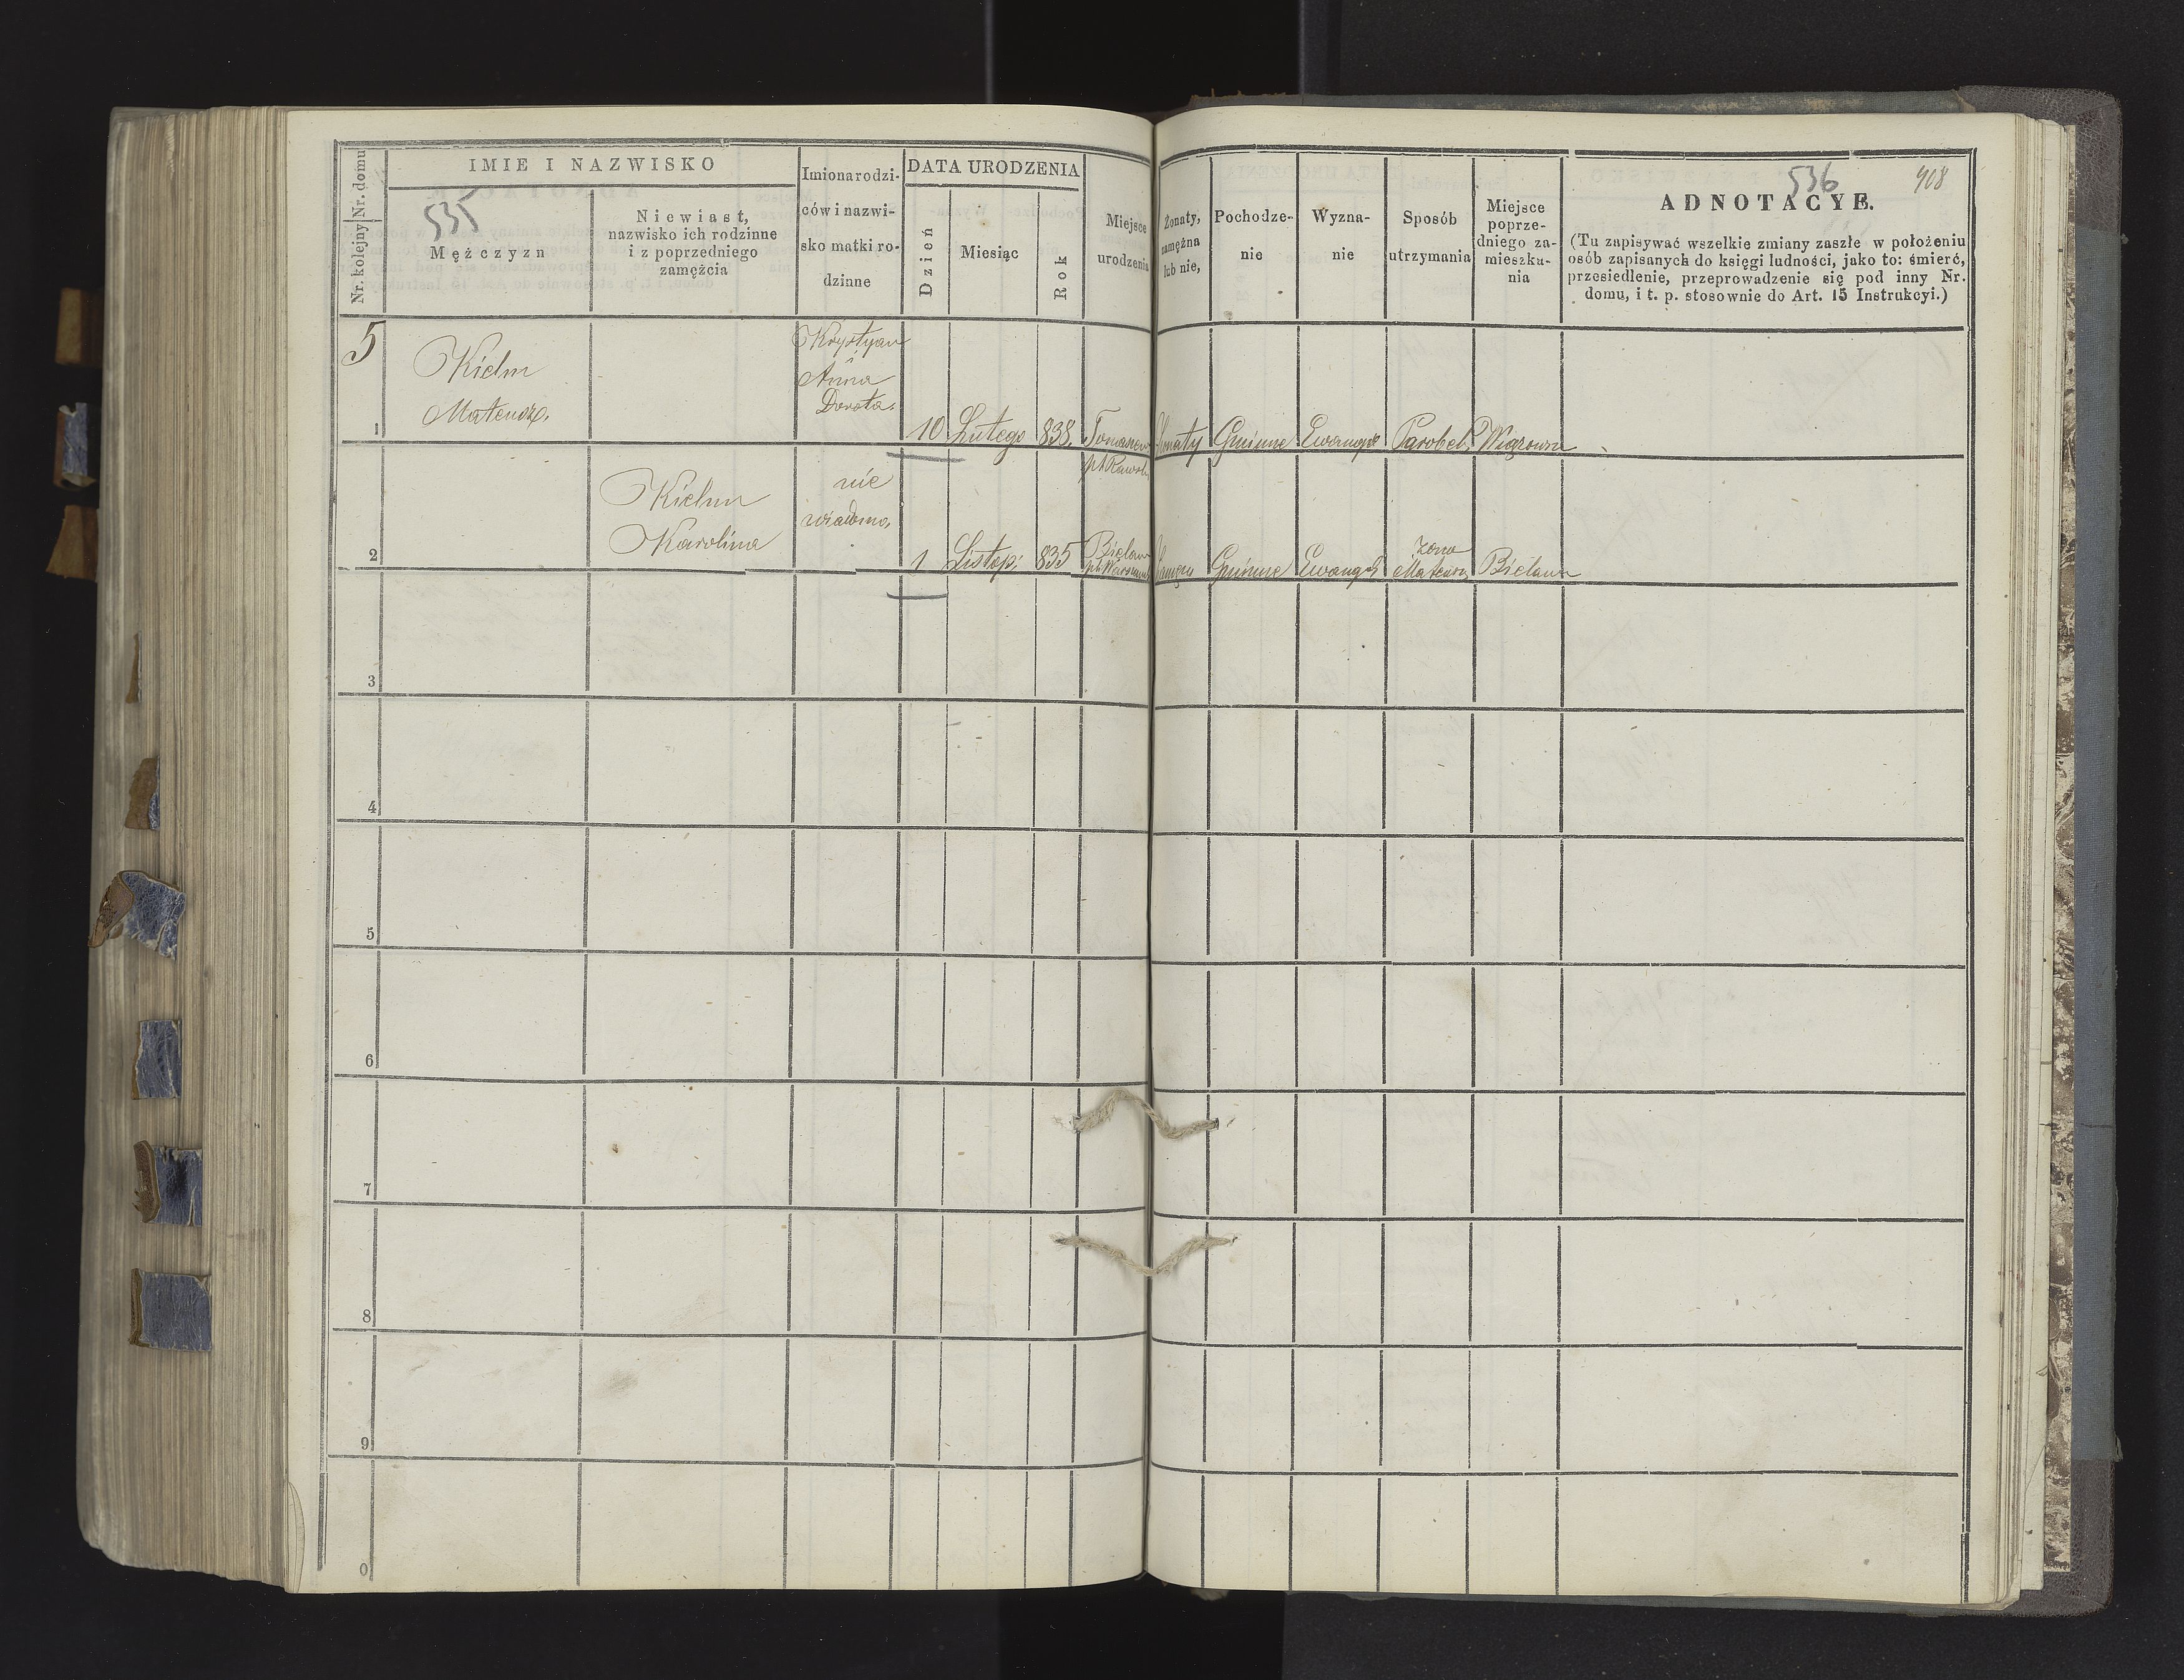 Nr. kolejny Nr. domu
IMIE I NAZWISKO
535
Mężczyzn
Niewiast,
nazwisko ich rodzinne
i z poprzedniego
zamęźcia
Imiona rodzi-
ców i nazwi-
sko matki ro-
dzinne
DATA URODZENIA
Dzień
Miesiąc
Rok
Miejsce
urodzenia
Żonaty,
zamężna
lub nie,
Pochodze-
nie
Wyzna-
nie
Sposób
utrzymania
Miejsce
poprze-
dniego za-
mieszka-
nia
536
908
ADNOTACYE.
(Tu zapisywać wszelkie zmiany zaszłe w położeniu
osób zapisanych do księgi ludności, jako to: śmierć,
przesiedlenie, przeprowadzenie się pod inny Nr.
domu, i t. p. stosownie do Art. 15 Instrukcyi.)
5
1
Kielm
Mateusz.
Krystyan
i
Anna
Dorota.
10 Lutego 838.
Żonaty Gminne Ewangie Parobek
2
Kielm
Karolina
nie
wiadomo.
1 Listop: 835
Bielawa
Gminne Ewangel
żona
Mateusza
Bielawa
3
4
5
6
7
8
9
0